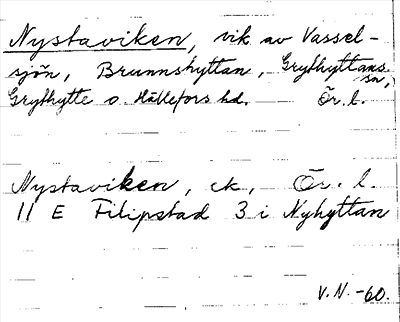 Nystaviken, vik av Vassel-
sjön, Brunnshyttan, Grythyttans
sn,
Grythytte o. Hällefors hd. Ör. l.
Nystaviken, ek, Ör. l.
11 E Filipstad 3 i Nyhyttan
V.N. -60.